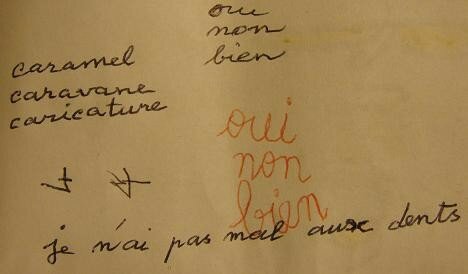 oui
non
bien
caramel
caravane
caricature
oui
non
bien
je n'ai pas mal aux dents